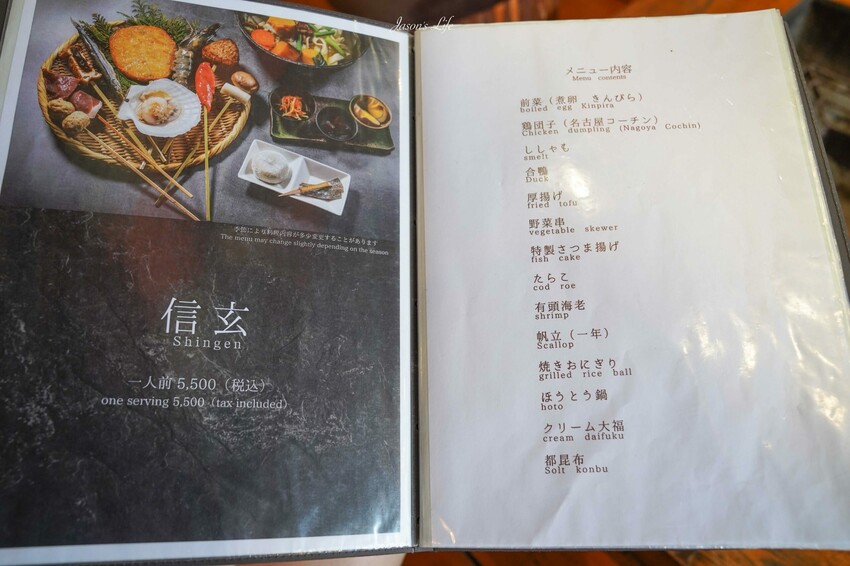 Jason's Life
季節により料理内容が多少変更することがあります
The menu may change slightly depending on the season
信玄
Shingen
一人前 5,500（税込）
one serving 5,500（tax included）
メニュー内容
Menu contents
前菜（煮卵 きんぴら）
boiled egg Kinpira
鶏団子（名古屋コーチン）
Chicken dumpling (Nagoya Cochin)
ししゃも
smelt
合鴨
Duck
厚揚げ
fried tofu
野菜串
vegetable skewer
特製さつま揚げ
fish cake
たらこ
cod roe
有頭海老
shrimp
帆立（一年）
Scallop
焼きおにぎり
grilled rice ball
ほうとう鍋
hoto
クリーム大福
cream daifuku
都昆布
Solt konbu